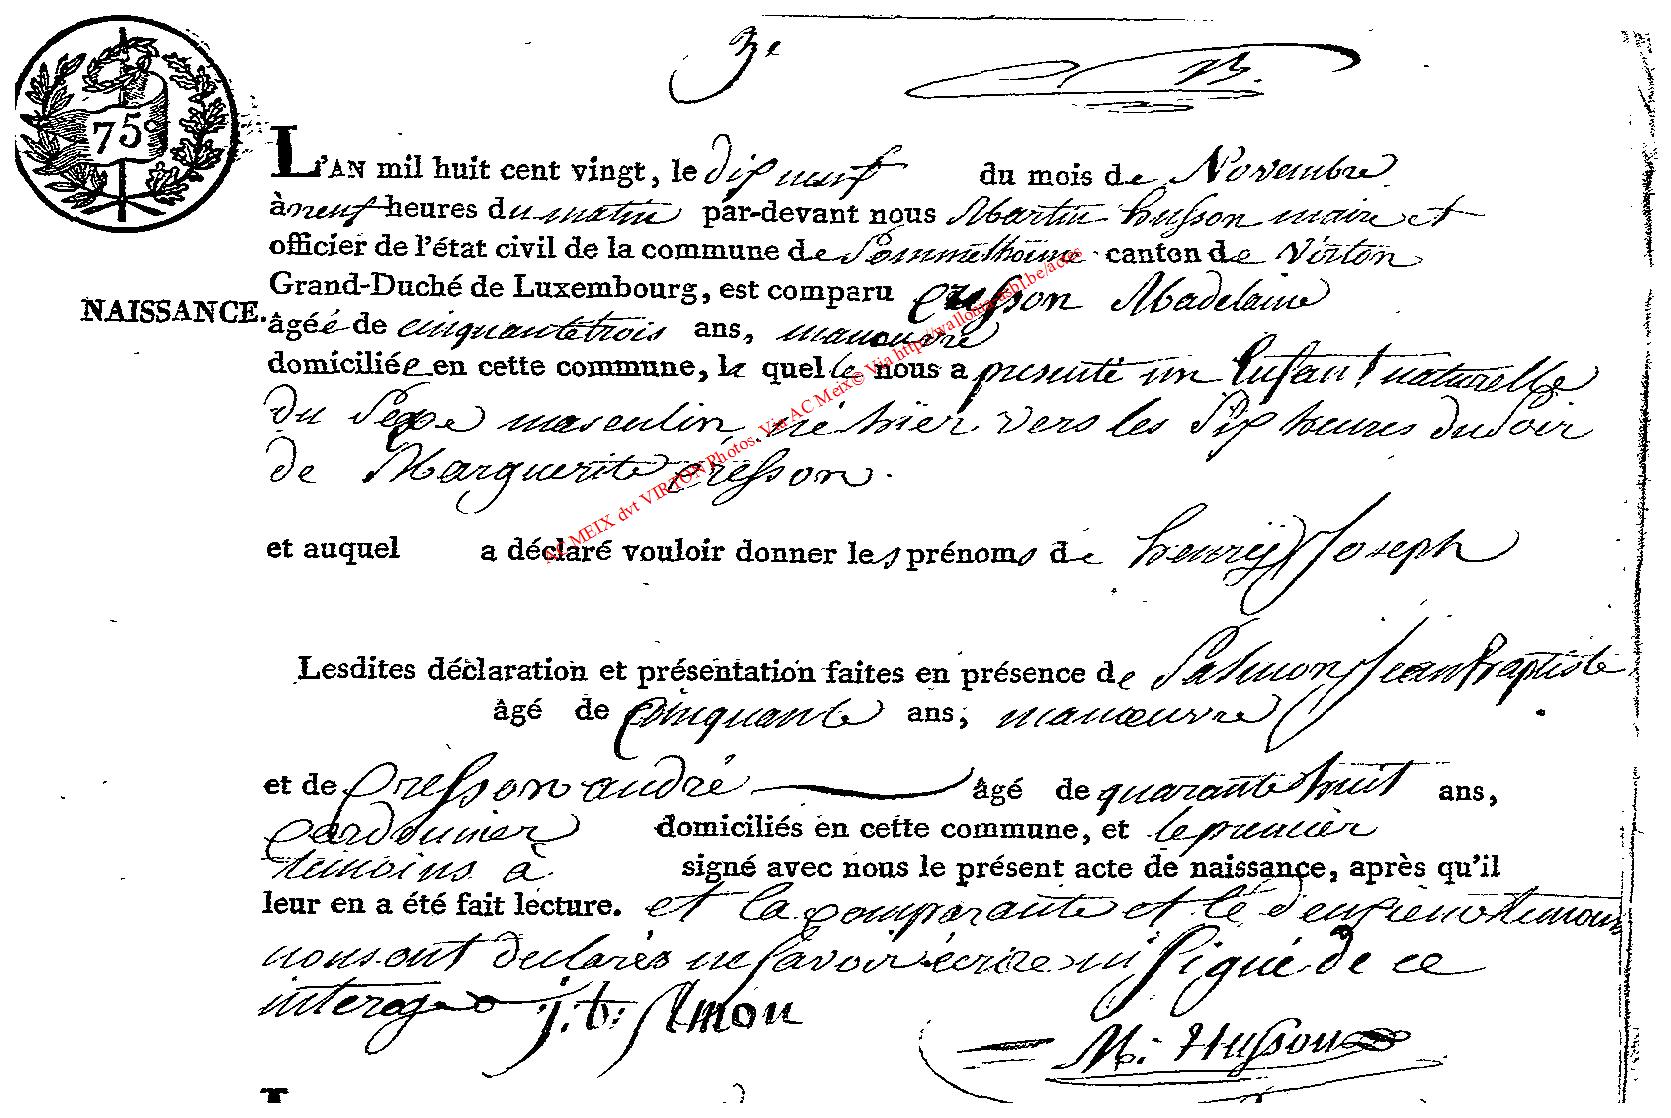 75
3e
L'AN mil huit cent vingt, le dix neuf du mois de Novembre
à neuf heures du matin par-devant nous Martin husson maire et
officier de l'état civil de la commune de Sommethonne canton de Virton
Grand-Duché de Luxembourg, est comparu Cresson Madelaine
NAISSANCE.
âgéé de cinquante trois ans, manouvre
domiciliée en cette commune, la quelle nous a presenté un Enfant naturelle
du Sexe masculin né hier vers les Six heures du Soir
de Marguerite Cresson.
et auquel a déclaré vouloir donner les prénoms de henry Joseph
Lesdites déclaration et présentation faites en présence de Salmon Jean baptiste
âgé de Cinquante ans, manœuvre
et de Cresson andré âgé de quarante huit ans,
Cordonnier domiciliés en cette commune, et le premier
temoins a signé avec nous le présent acte de naissance, après qu'il
leur en a été fait lecture. et la Comparante et le deuxieme temoin
nous ont declarés ne Savoir écrire ni Signé de ce
interogé
M: Husson
AC MEIX dvt VIRTON Photos. Via AC Meix© Via http://walloniaasbl.be/actes